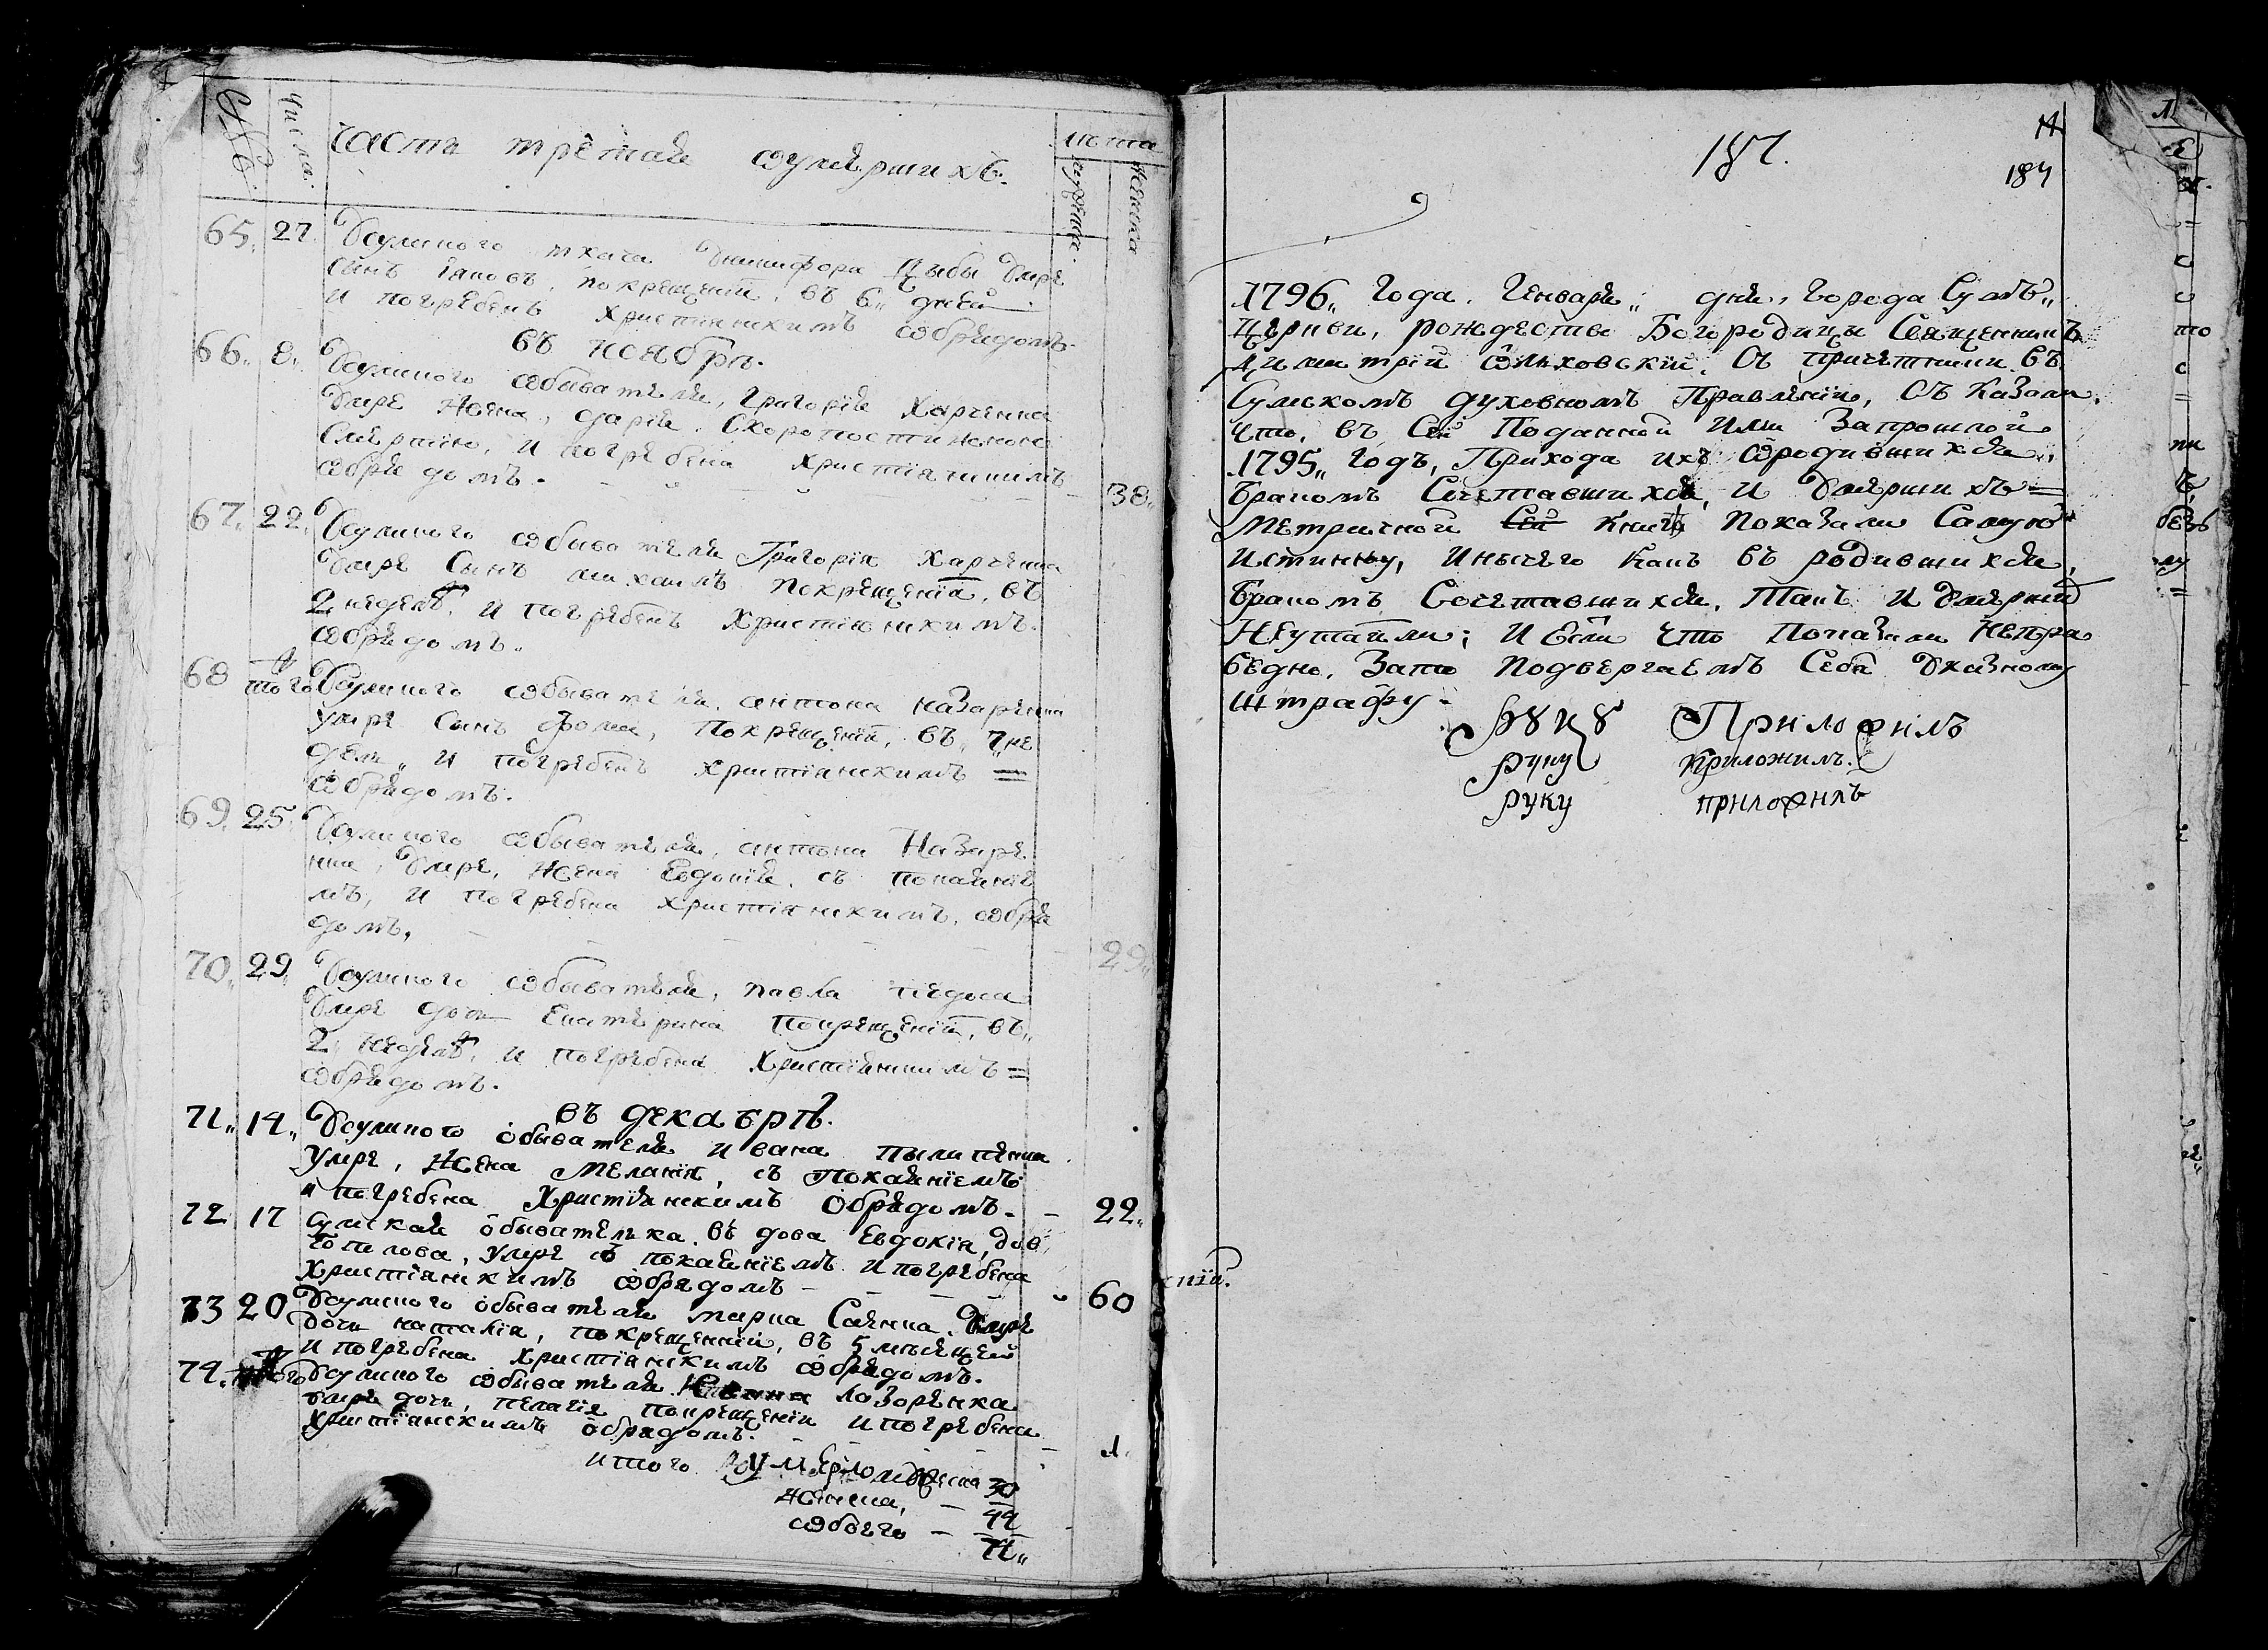 Числа.
часть третая ѡумершихъ.
лета
мужеска.
женска
65. 27. Ѹсумского ткача Никифора Цыбы Ѹмре
сынъ Iаковъ, покрещенїи, въ 6„ дней
и погребенъ христїанскимъ ѡбрядомъ
въ ноябрѣ.
66. 8. Ѹсумского ѡбывателя, григорїя Харченка
Ѹмре жена, дарїя. Скоропостижною
Смертїю, и погребена христїанскимъ
ѡбрядомъ. 38.
67. 22. Ѹсумского ѡбывателя Григорїя Харченка
Ѹмре Сынъ михаилъ покрещенїи, въ
2 недели, и погребенъ Христїанскимъ
ѡбрядомъ.
68 того Ѹсумского ѡбывателя, антона назаренка
умре Сынъ фома, покрещенїи, въ 7 не
дель„ и погребенъ христїанскимъ =
ѡбрядомъ.
69. 25. Ѹсумского ѡбывателя, антона Назаре
нка, Ѹмре, жена Евдокїя, съ покаянїе
мъ, и погребена христїанскимъ, ѡбря
домъ, 29„
70„ 29. Ѹсумского ѡбывателя, павла
Ѹмре дочь Екатерина покрещенїи, въ„
2„ недели, и погребена Христїанскимъ =
ѡбрядомъ.
въ декабрѣ.
71„ 14„ Ѹсумского обывателя ивана пылипенка
умре, жена Меланїя, съ покаянїемъ
и погребена Христїанскимъ обрядомъ. 22„
72 17 Сумская обывателка въдова Евдокїя,
умре съ покаянїемъ и погребена
Христїанскимъ ѡбрядомъ 60
73 20 Ѹсумского обывателя марка Саенка Ѹмре
дочь наталїя, покрещенїи, въ 5 мѣсяцей
и погребена христїанскимъ ѡбрядомъ.
74. того Ѹсумского ѡбывателя лазоренка
Ѹмре дочь, пелагїя покрещенїи и погребена
Христїанскимъ обрядомъ.
итого умерло мужеска 30
женска, — 44
ѡбоего —
187.
14
187
1796„ Года. Генваря„ дня, города Сумъ„
церкви, рождества Богородицы Священникъ
Димитрїй ѡлховскїй, Съ причетники въ
Сумскомъ духовномъ Правленїи, Съказали
что, въ Сей Поданной Ими Запрошлой
1795„ годъ, Прихода ихъ ѡродившихся,
бракомъ Сочетавшихся, и Ѹмершихъ =
метричной Сей книгѣ показали Самую
истинну, иничего какъ въ родившихся,
бракомъ Сочетавшихся, такъ и Ѹмершихъ
Неутаили; и Если что показали Непра
ведно, Зато подвергаемъ Себя Ѹказному
штрафу.
рѹкѹ Приложилъ
руку приложилъ.
руку приложилъ